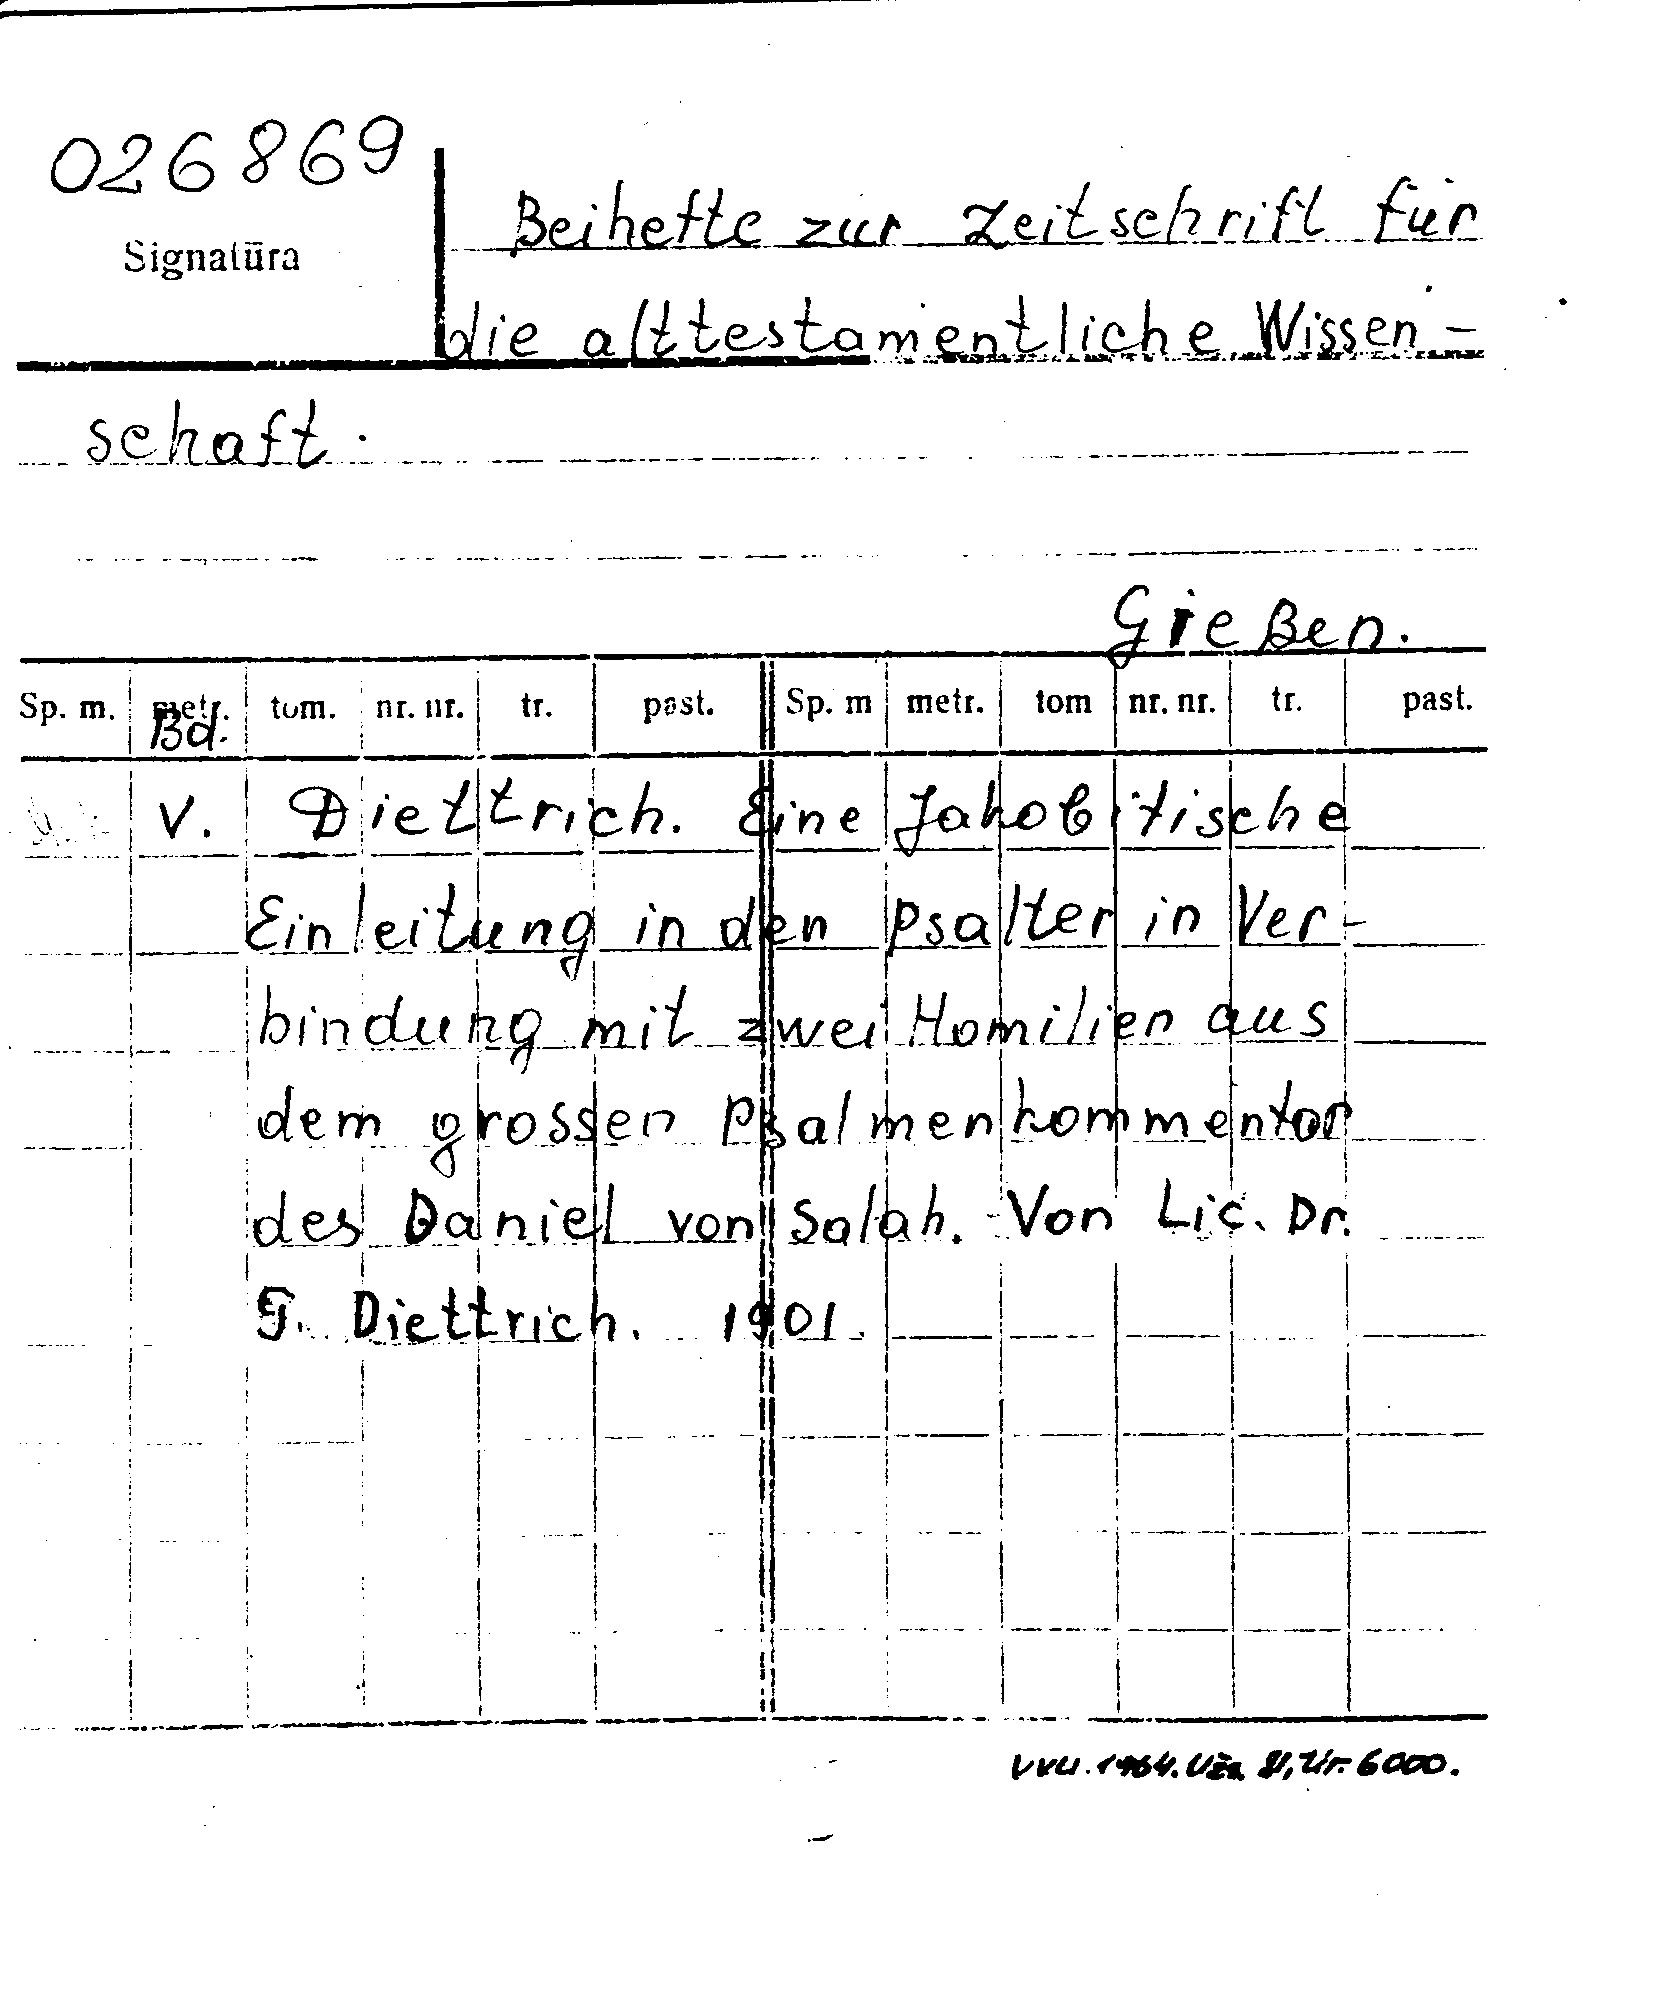 026869
Signatūra
Beihefte zur Zeitschrift für
die alttestamentliche Wissen-
schaft.
Gießen.
Sp. m. metr. tom. nr. nr. tr. past. Sp. m metr. tom nr. nr. tr. past.
Bd.
V. Diettrich. Eine Jakobitische
Einleitung in den Psalter in Ver-
bindung mit zwei Homilien aus
dem grossen Psalmenkommentar
des Daniel von Salah. Von Lic. Dr.
G. Diettrich. 1901.
VVU. 1964. Užs. Nr. 6000.